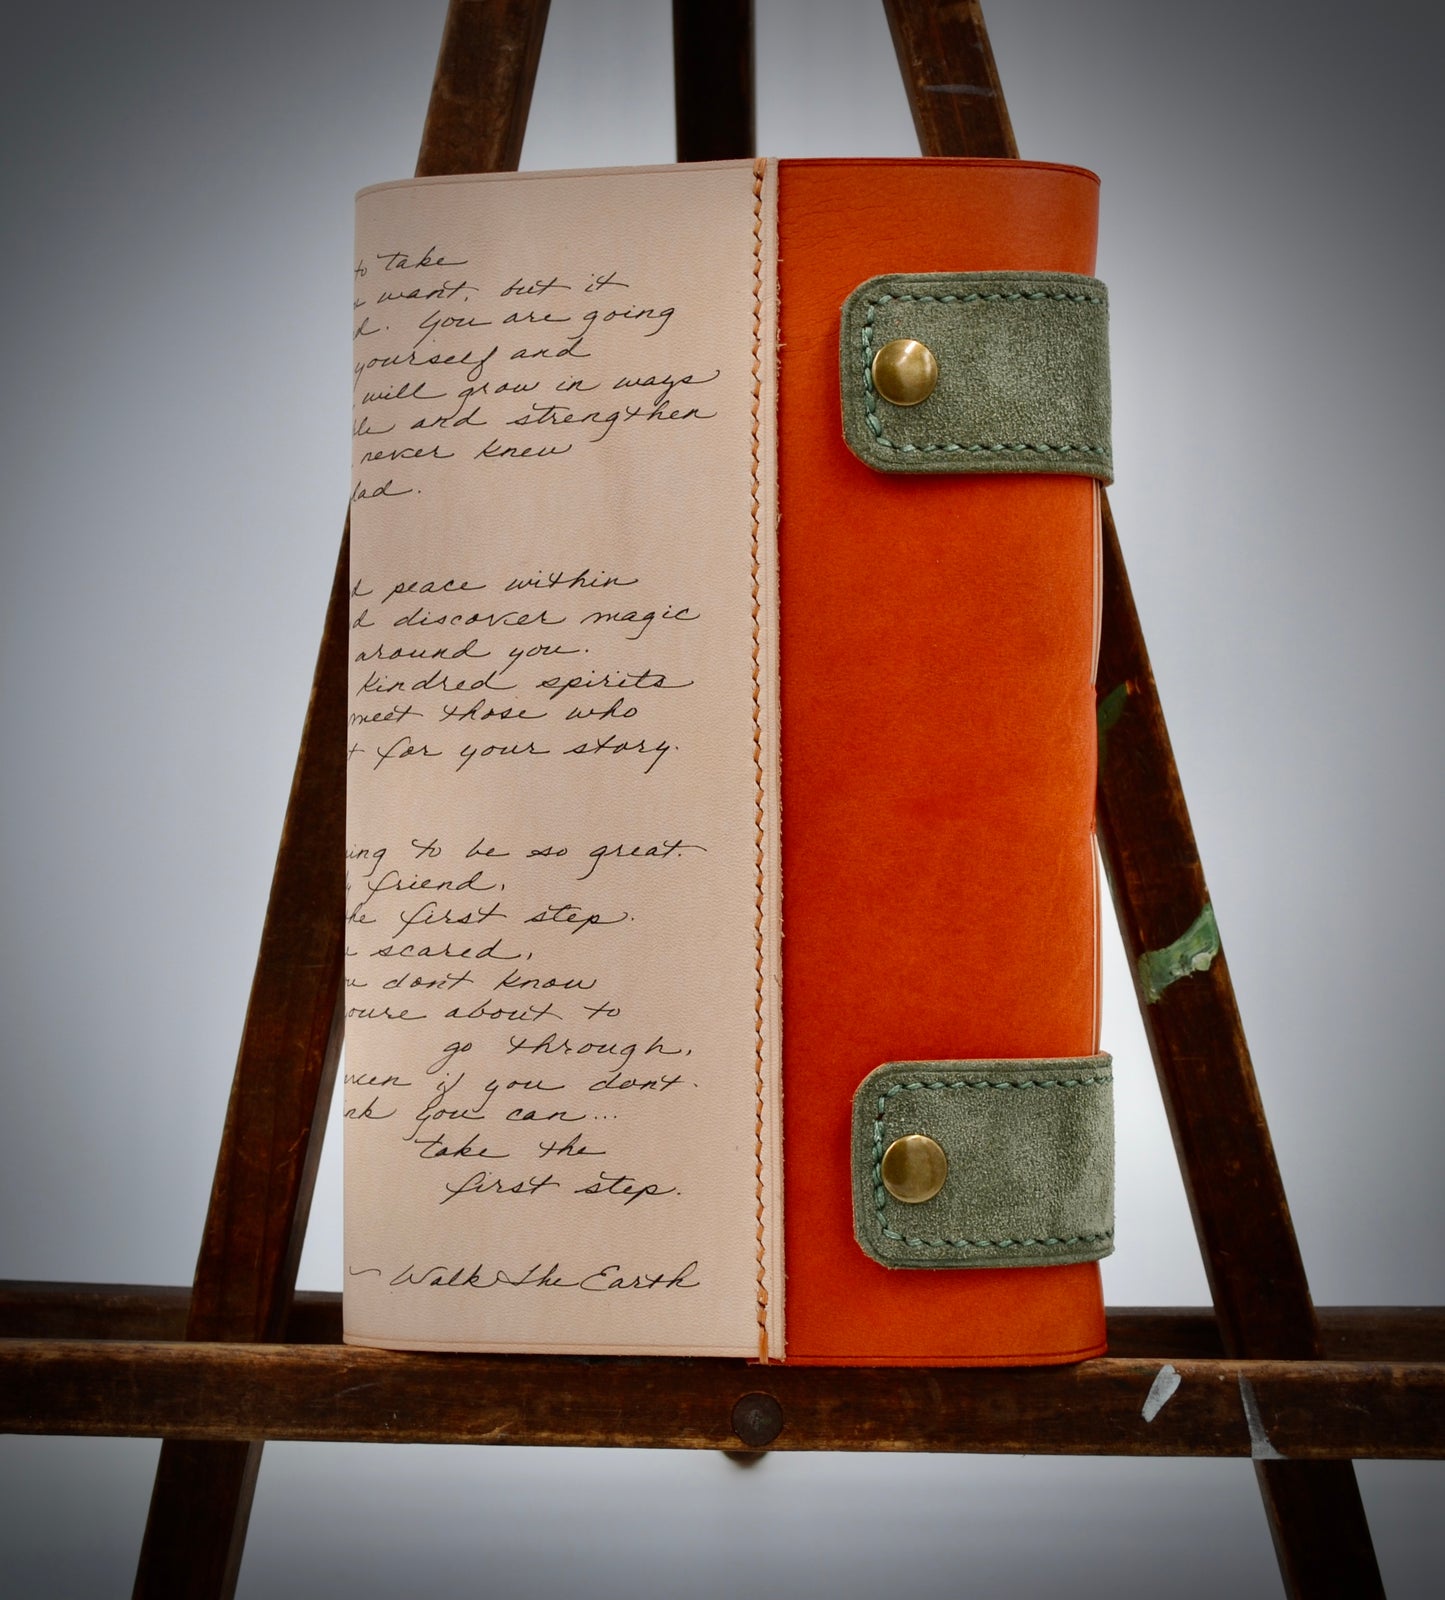 to take
want, but it
d. You are going
yourself and
will grow in ways
le and strengthen
never knew
lad.
d peace within
d discover magic
around you.
kindred spirits
meet those who
t for your story.
ing to be so great.
y friend,
he first step.
u scared,
u dont know
oure about to
go through,
even if you dont
ink you can...
take the
first step.
~ Walk The Earth